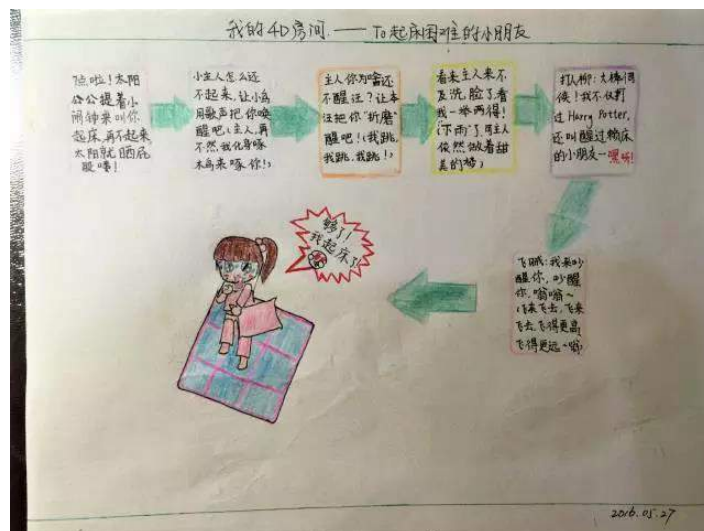 我的4D房间.——To起床困难的小朋友
7点啦！太阳
公公提着小
闹钟来叫你
起床,再不起来,
太阳就晒屁
股喽！
小主人怎么还
不起来,让小鸟
用歌声把你唤
醒吧(主人,再
不然我化身啄
木鸟来啄你！)
主人你为啥还
不醒汪？让本
汪把你"折磨"
醒吧！(我跳,
我跳,我跳！)
看来主人来不
及洗脸了,看
我一举两得！
(下雨了,可主人
依然做着甜
美的梦)
打人柳：大棒伺
候！我不仅打
过Harry Potter,
还叫醒过赖床
的小朋友—嘿呀!
飞毯：我来吵
醒你,吵醒
你,嗡嗡~
(飞来飞去,飞来
飞去,飞得更高
飞得更远~嗡)
够了！
我起床了
2016.05.27